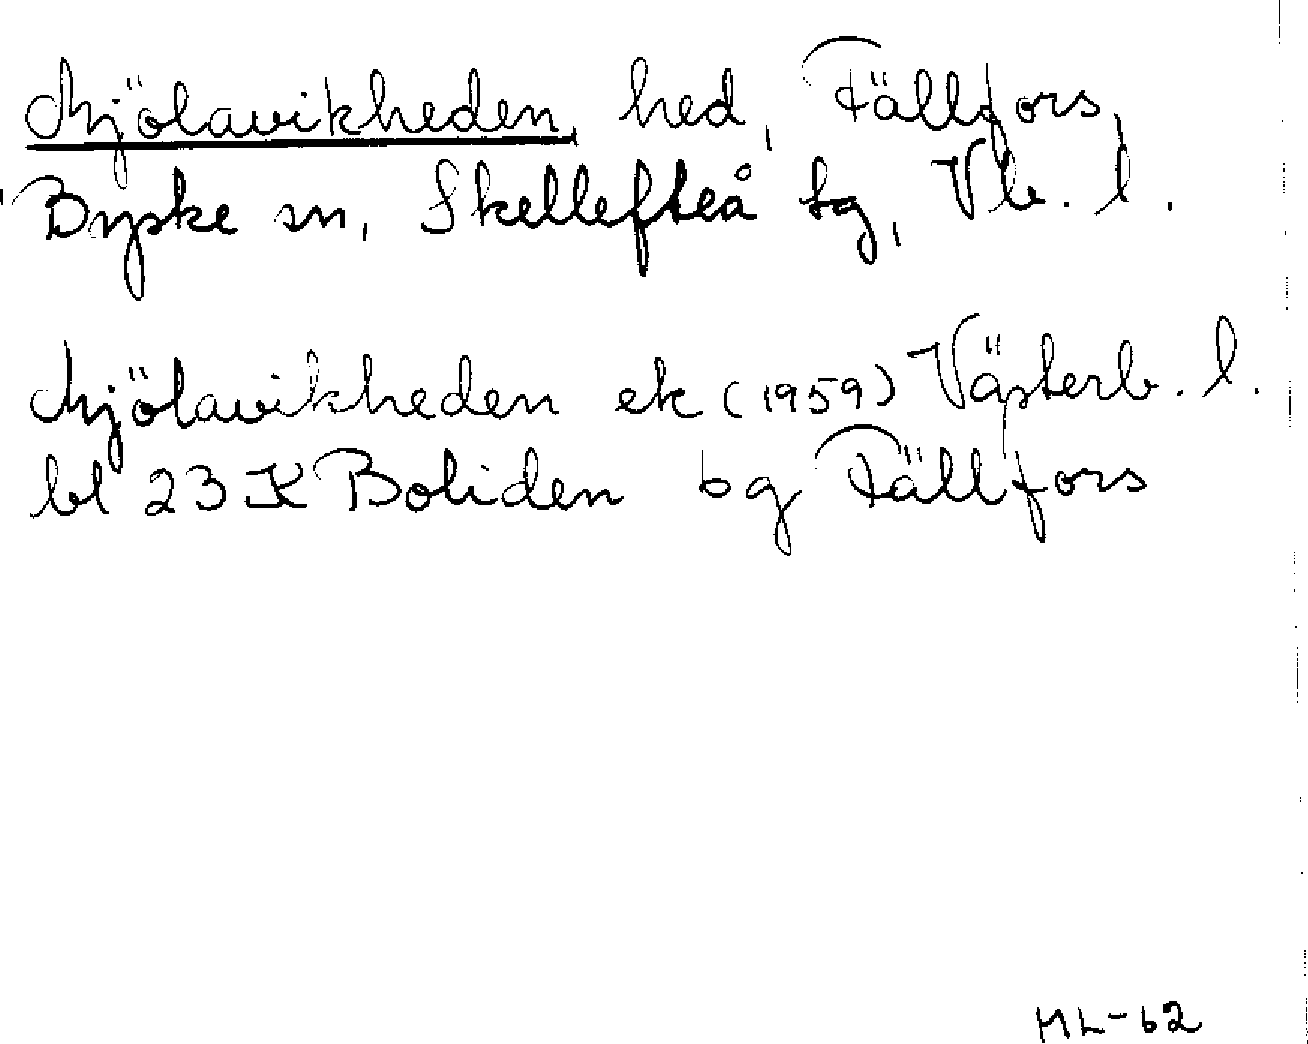 Mjölavikheden, hed, Fällfors,
Byske sn, Skellefteå tg, Vb. l.
Mjölavikheden ek (1959) Västerb. l.
bl 23 K Boliden bg Fällfors
ML-62